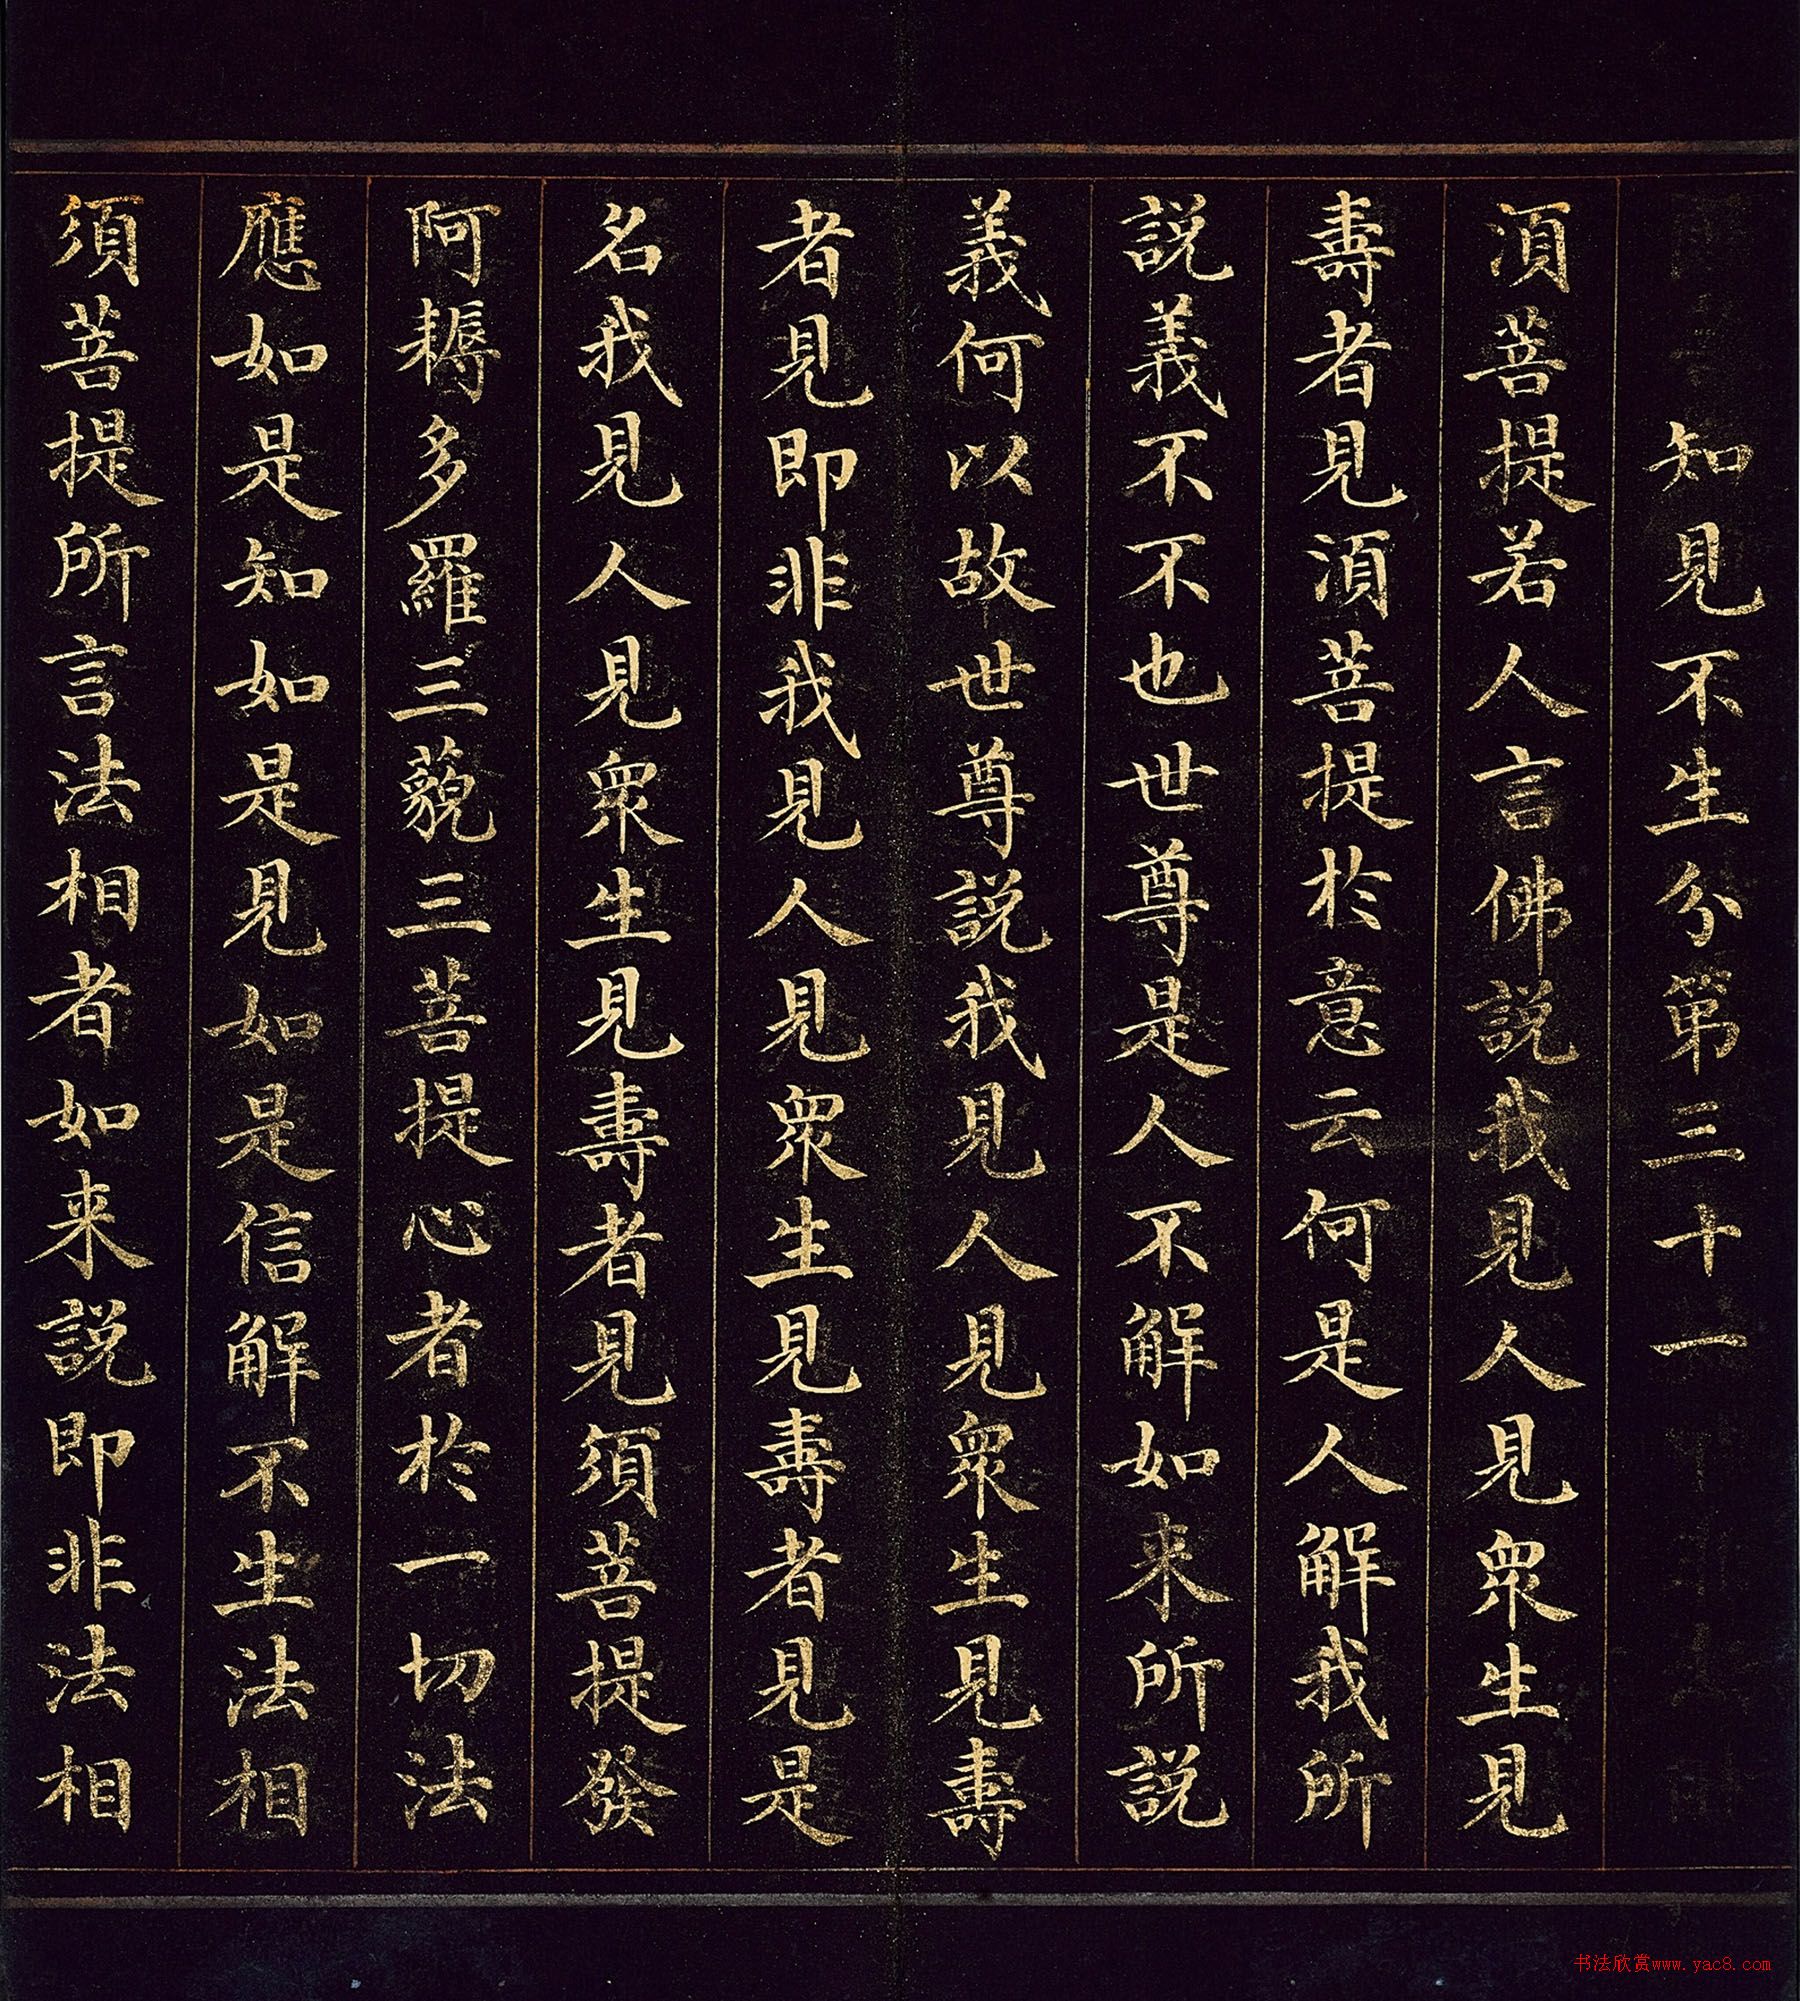 知見不生分第三十一
湏菩提若人言佛説我見人見衆生見
壽者見湏菩提於意云何是人解我所
説義不不也世尊是人不解如来所説
義何以故世尊説我見人見衆生見壽
者見即非我見人見衆生見壽者見是
名我見人見衆生見壽者見須菩提發
阿耨多羅三藐三菩提心者於一切法
應如是知如是見如是信解不生法相
須菩提所言法相者如来説即非法相
书法欣赏www.yac8.com